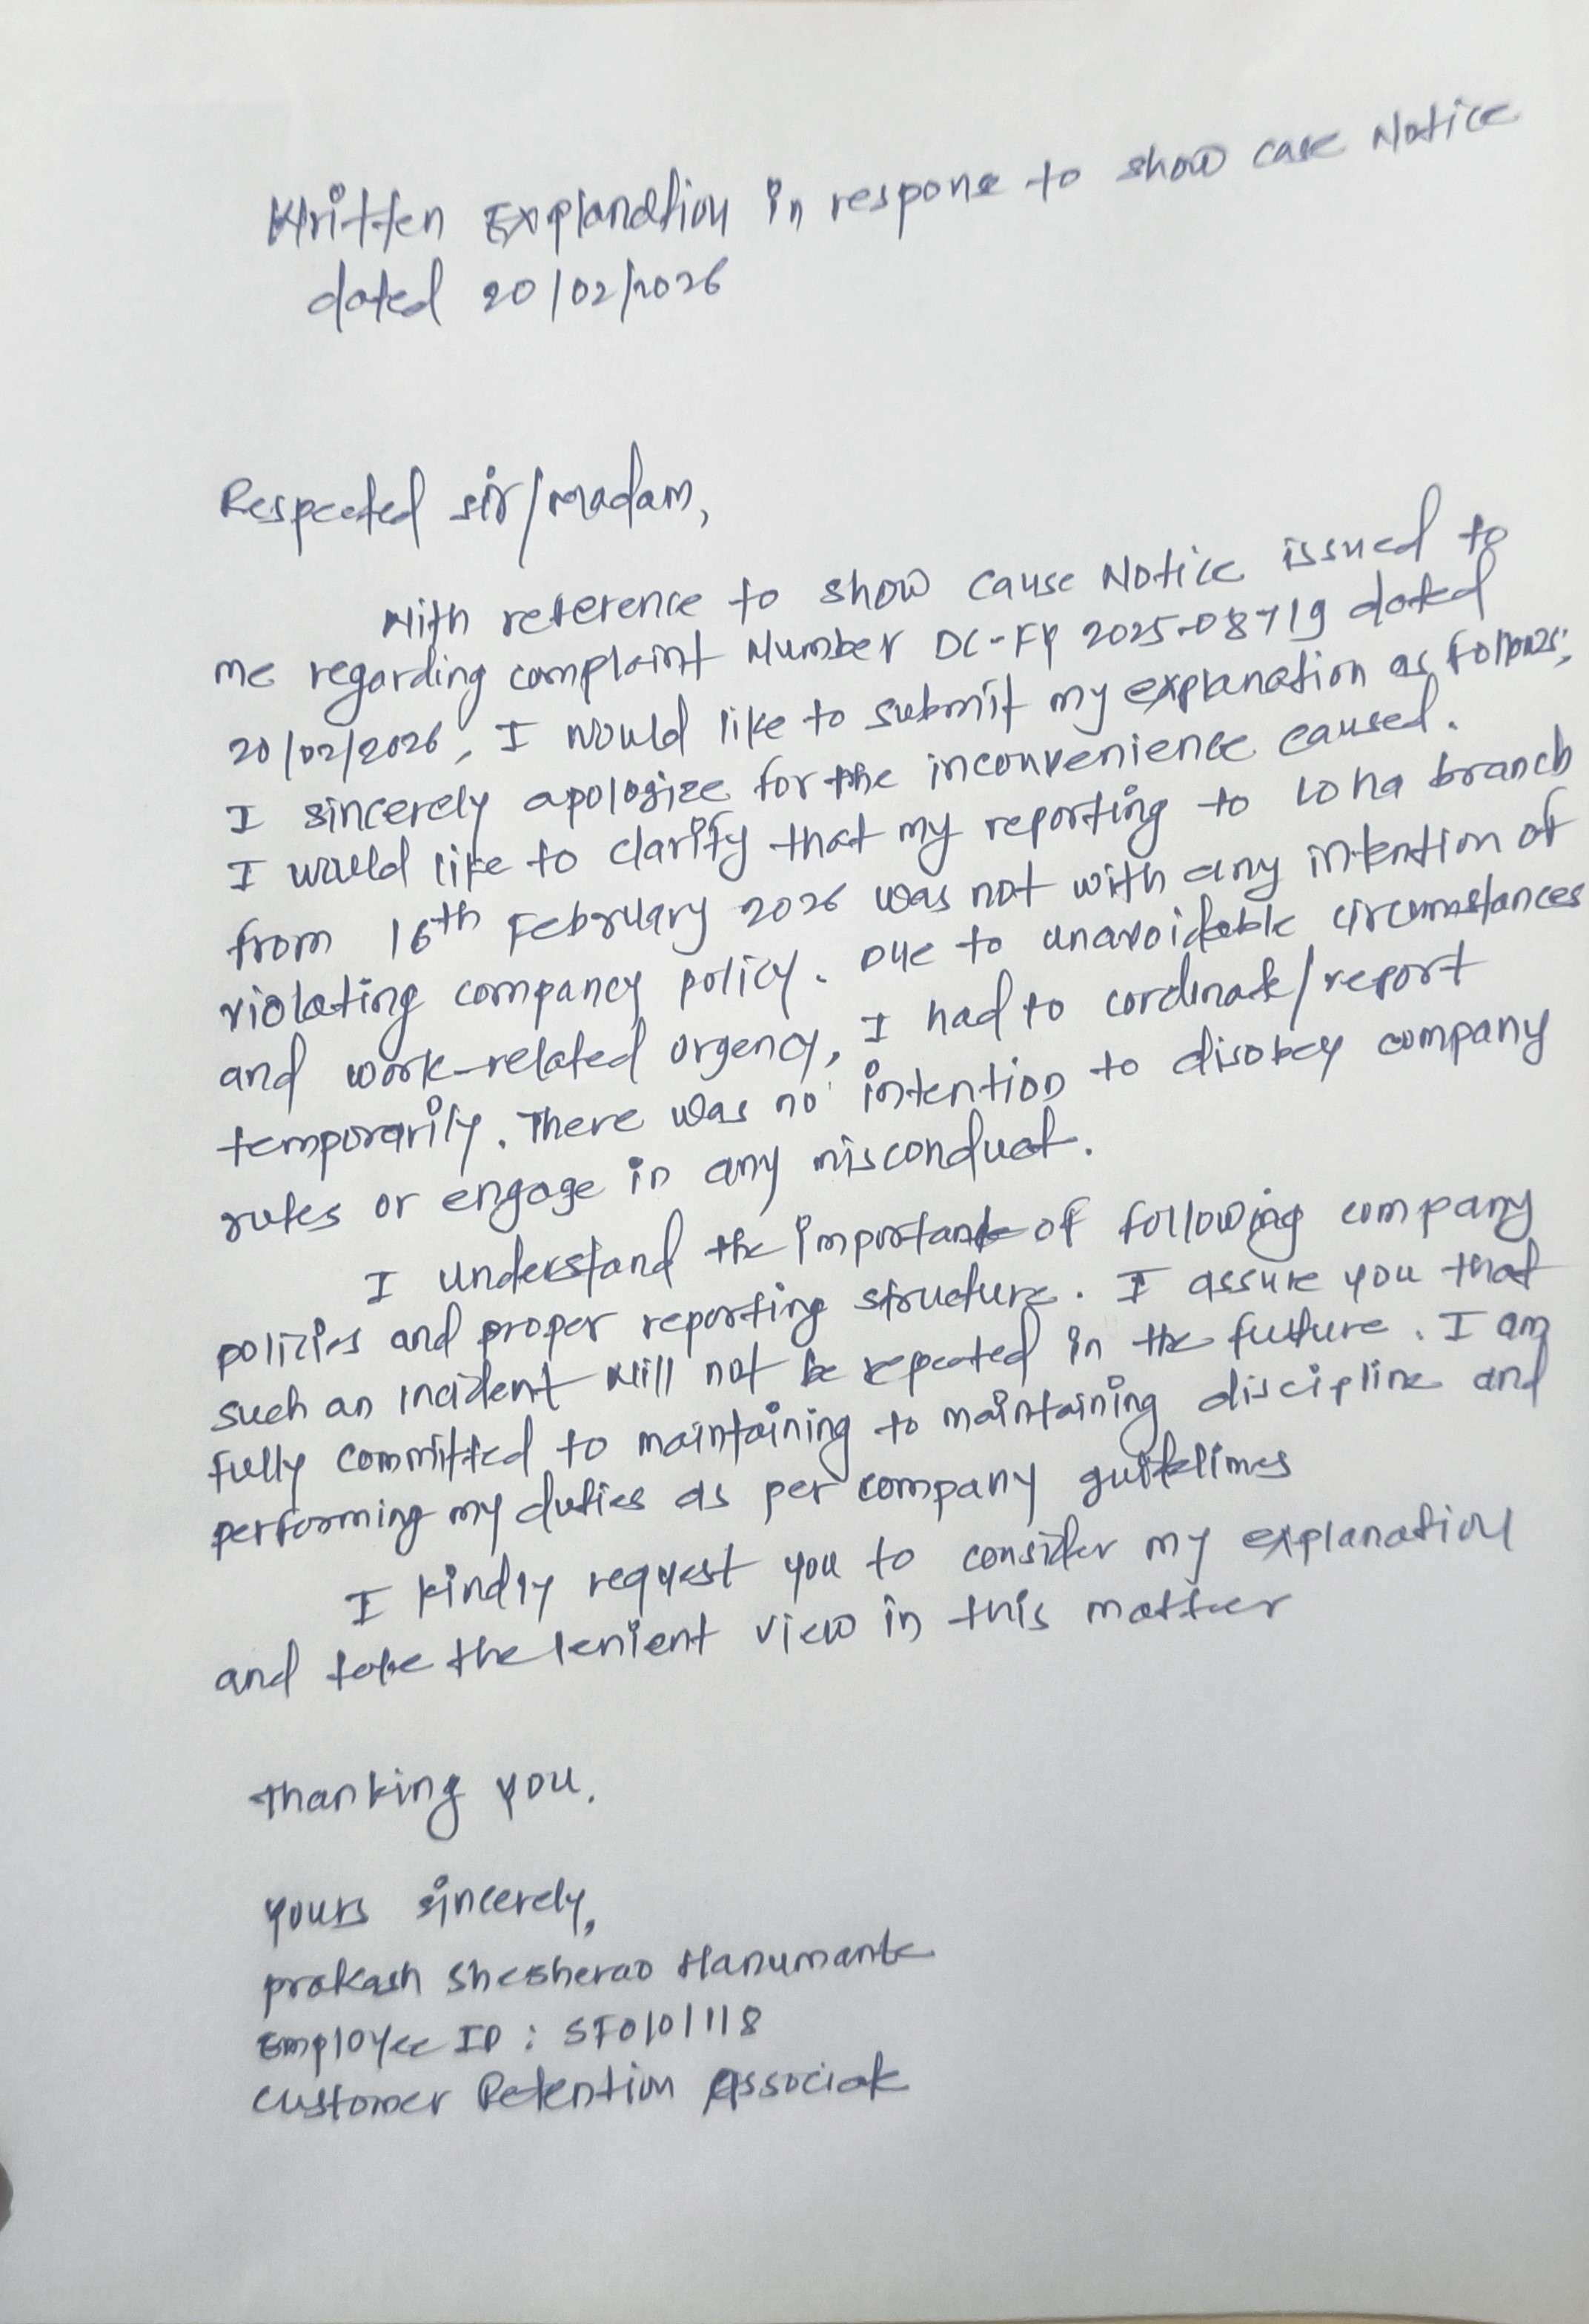 Written Explanation in response to show case Notice
dated 20/02/2026
Respected sir/madam,
With reference to show cause Notice issued to
me regarding complaint Number DC-FY 2025-08719 dated
20/02/2026, I would like to submit my explanation as follows;
I sincerely apologize for the inconvenience caused.
I would like to clarify that my reporting to Loha branch
from 16th February 2026 was not with any intention of
violating company policy. Due to unavoidable circumstances
and work-related urgency, I had to cordinate/report
temporarily. There was no intention to disobey company
rules or engage in any misconduct.
I understand the importance of following company
policies and proper reporting structure. I assure you that
such an incident will not be repeated in the future. I am
fully committed to maintaining to maintaining discipline and
performing my duties as per company guidelines
I kindly request you to consider my explanation
and take the lenient view in this matter
Thanking you.
yours sincerely,
prakash Shesherao Hanumante
Employee ID : SF0101118
Customer Retention Associate